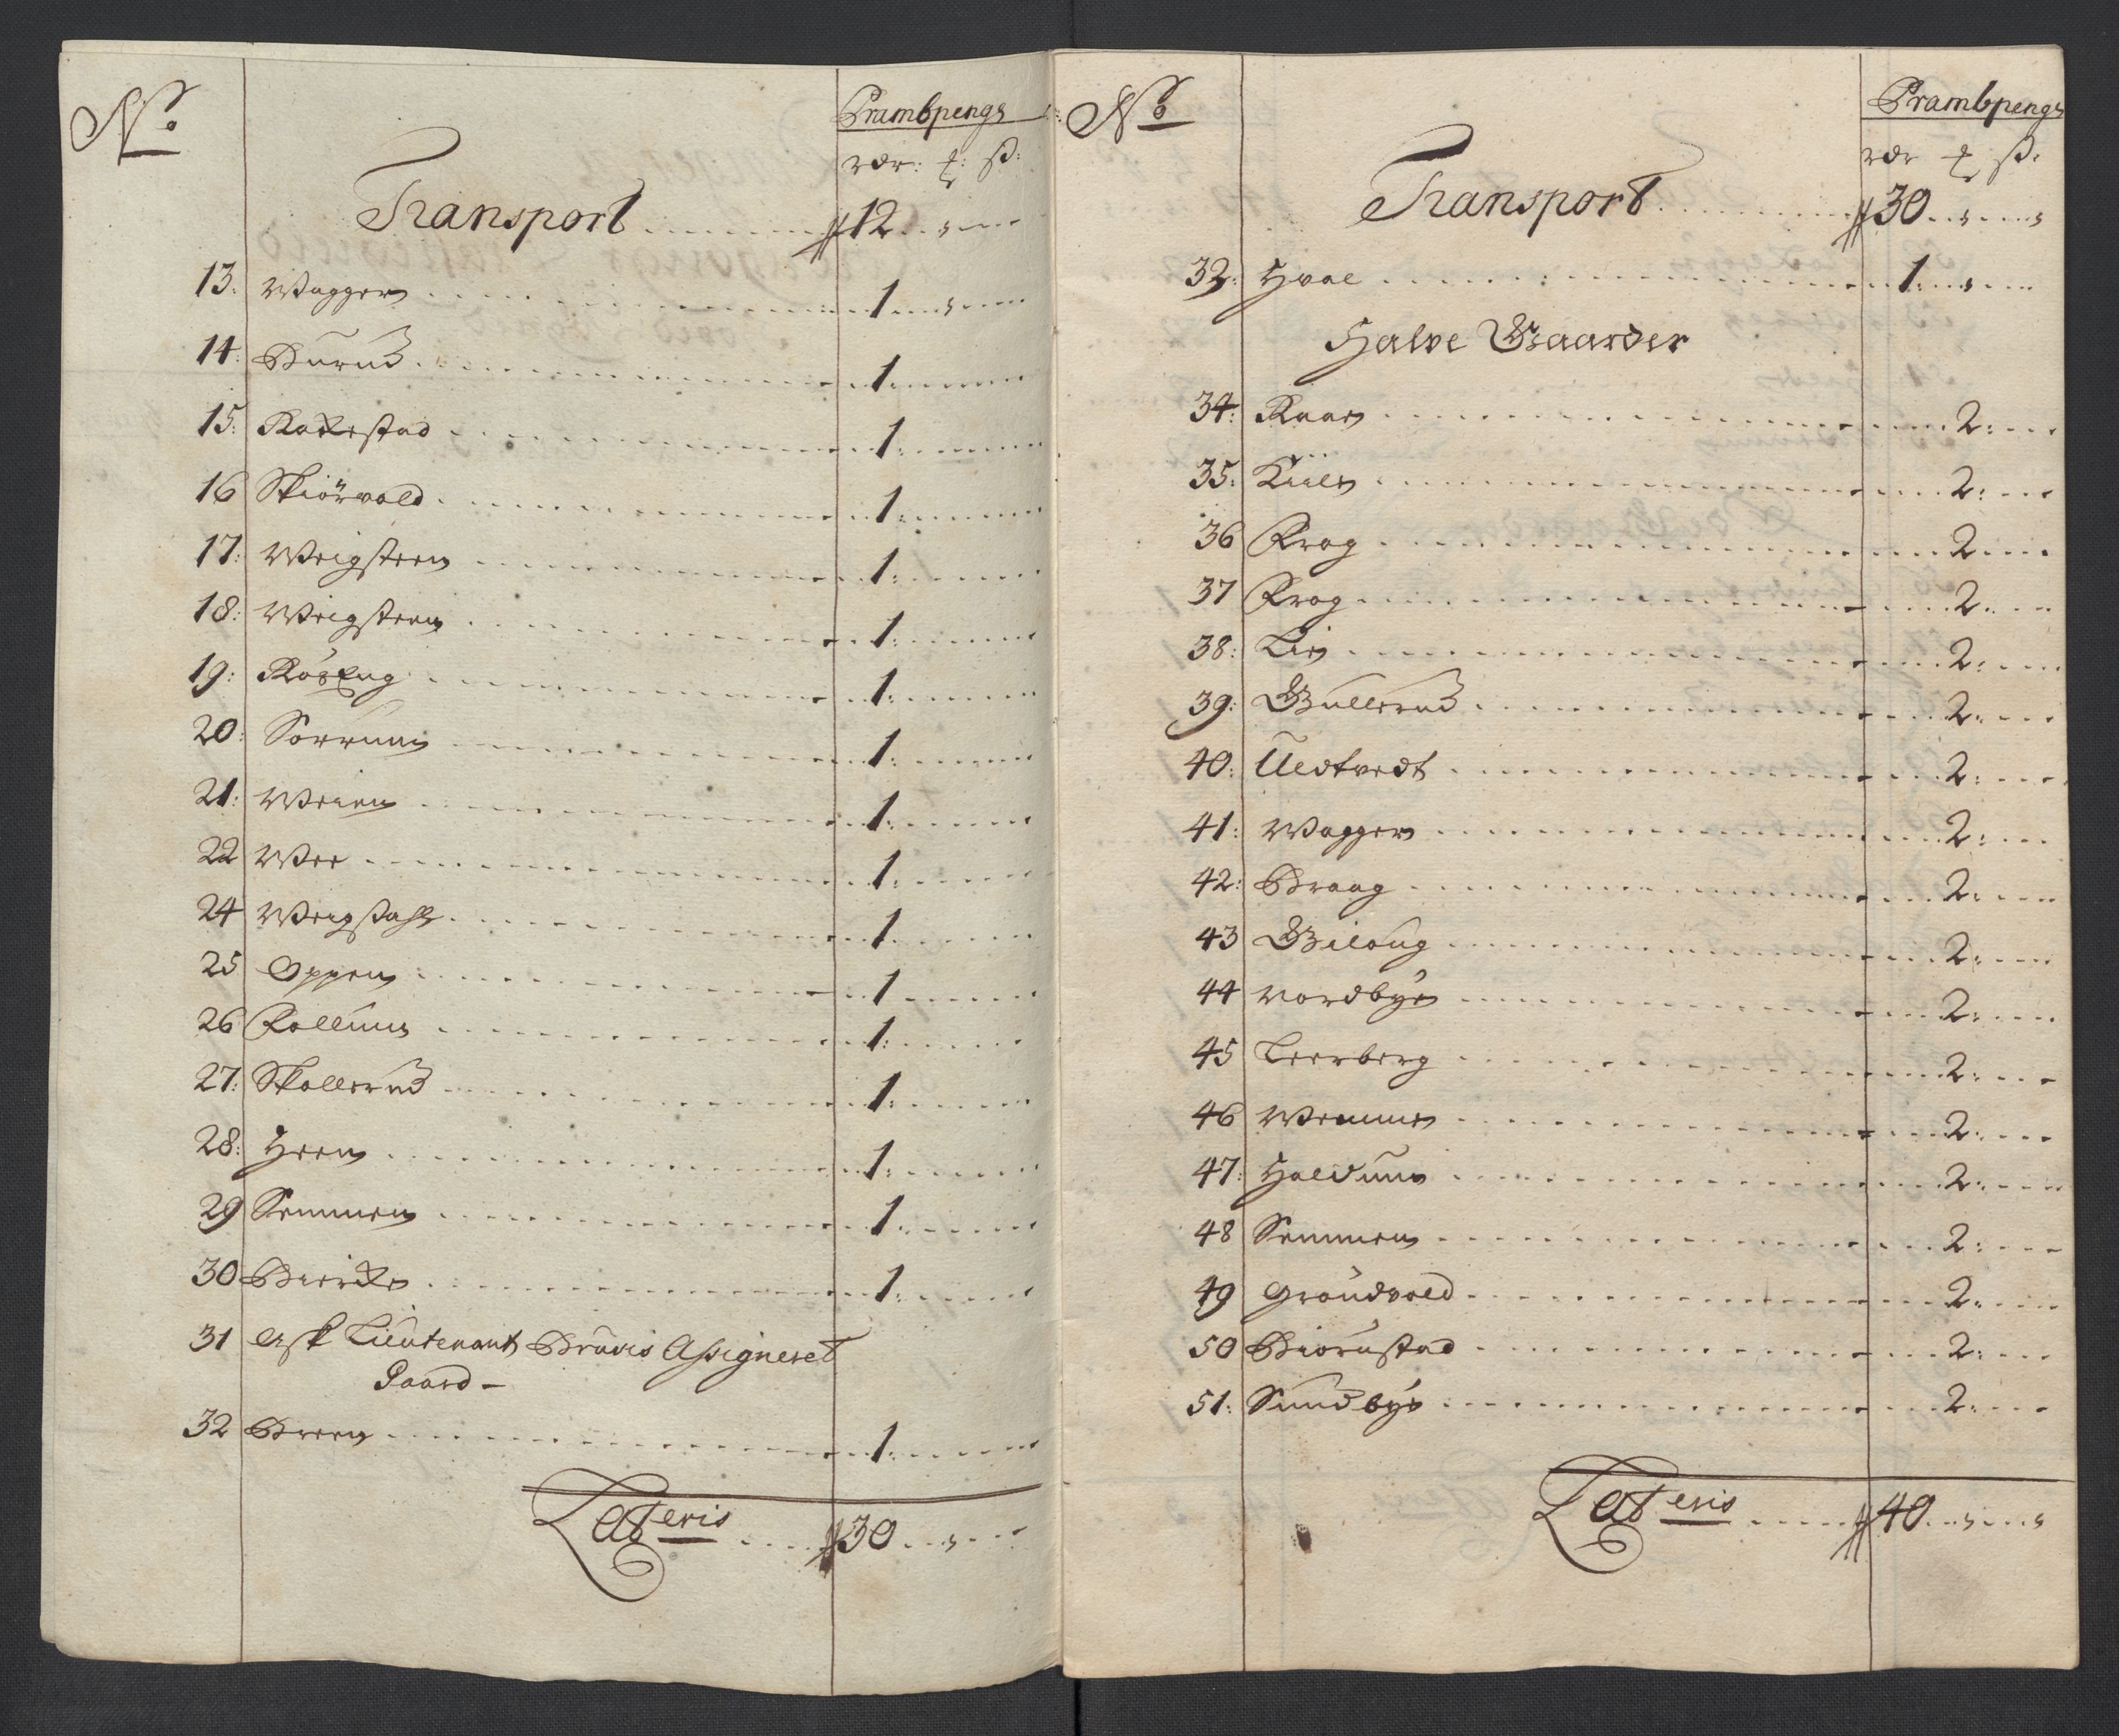 No
Prambpenge
rdr: ₰: ß:
Transport 12
13: Wagger 1
14: Burud 1
15: Rakestad 1
16 Skiørvold 1
17: Weigsteen 1
18: Weigsteen 1
19: Røseng 1
20: Sørrum 1
21: Weien 1
22 Wee 1
24 Weigstahl 1
25 Oppen 1
26 Follum 1
27: Skollerud 1
28: Heen 1
29 Semmen 1
30 Bierke 1
31 Ask Lieutenant Bruuis Assigneret
Gaard -
32 Breen 1
Lateris 30
No
Prambpenge
rdr ₰ ß:
Transport 30
33: Hval 1
Halve Gaarder
34: Raae 2
35: Kiile 2
36 Frog 2
37 Frog 2
38: Lie 2
39: Gullerud 2
40: Ultvedt 2
41: Wagger 2
42: Braag 2
43 Giloug 2
44 Nordbye 2
45 Leerberg 2
46 Wemme 2
47: Haldum 2
48 Semmen 2
49 Grøndvold 2
50 Biørnstad 2
51: Sundbye 2
Lateris 40